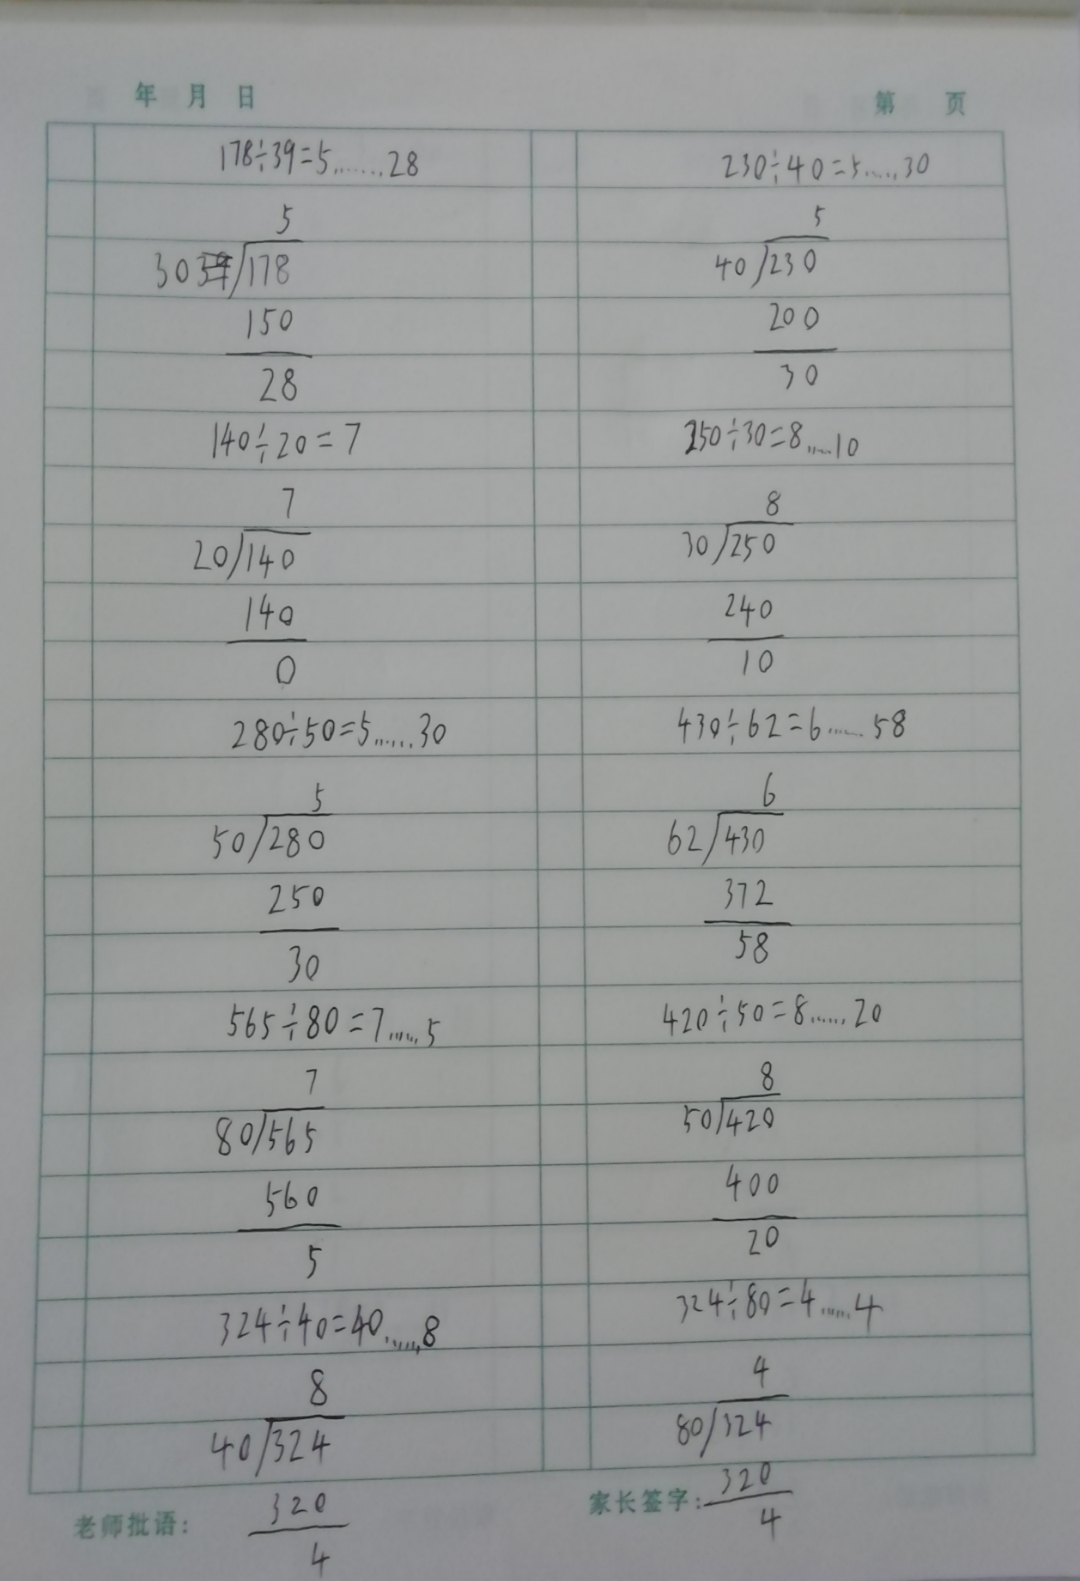 年 月 日
第 页
178÷39=5……28
5
30 178
150
28
140÷20=7
7
20 140
140
0
280÷50=5……30
5
50 280
250
30
565÷80=7……5
7
80 565
560
5
324÷40=40……8
8
40 324
320
4
230÷40=5……30
5
40 230
200
30
250÷30=8……10
8
30 250
240
10
430÷62=6……58
6
62 430
372
58
420÷50=8……20
8
50 420
400
20
324÷80=4……4
4
80 324
320
4
老师批语:
家长签字: